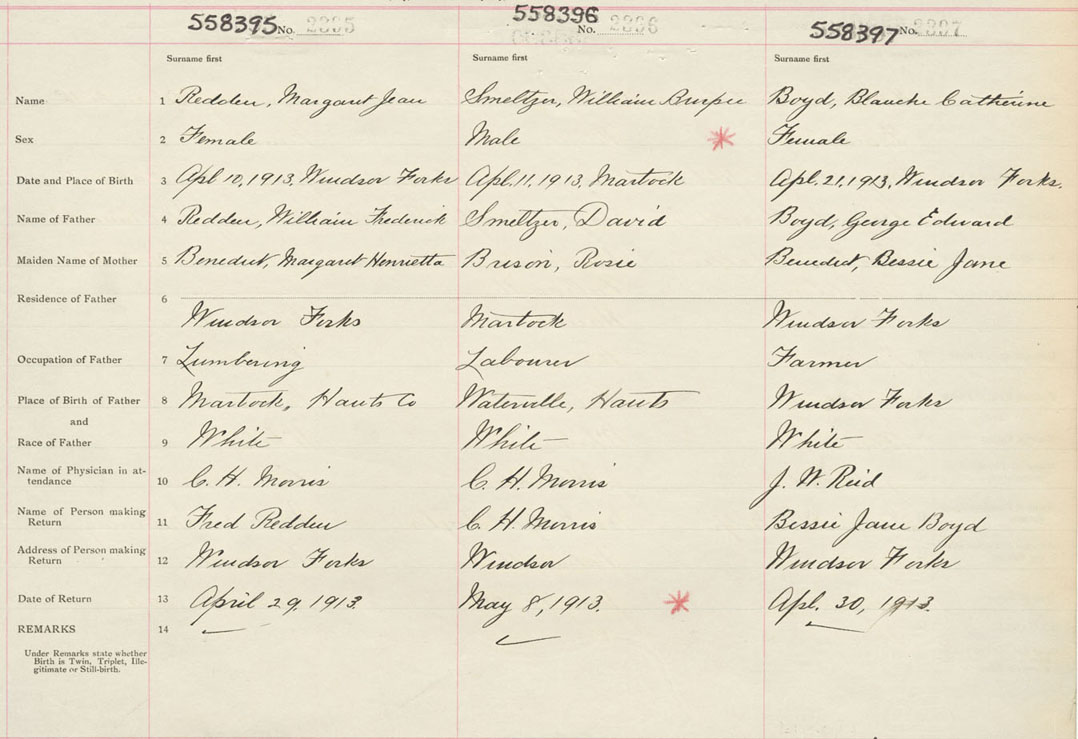 558395 No. 2295 558396 No. 2296 558397 No. 2297
Surname first Surname first Surname first
Name 1 Redden, Margaret Jean Smeltzer, William Burpee Boyd, Blanche Catherine
Sex 2 Female Male Female
Date and Place of Birth 3 Apl 10, 1913, Windsor Forks Apl. 11, 1913, Martock Apl. 21, 1913, Windsor Forks.
Name of Father 4 Redden, William Frederick Smeltzer, David Boyd, George Edward
Maiden Name of Mother 5 Benedict, Margaret Henrietta Brison, Rosie Benedict, Bessie Jane
Residence of Father 6
Windsor Forks Martock Windsor Forks
Occupation of Father 7 Lumbering Labourer Farmer
Place of Birth of Father 8 Martock, Hants Co Waterville, Hants Windsor Forks
and
Race of Father 9 White White White
Name of Physician in at-
tendance 10 C. H. Morris C. H. Morris J. W. Reid
Name of Person making
Return 11 Fred Redden C. H. Morris Bessie Jane Boyd
Address of Person making
Return 12 Windsor Forks Windsor Windsor Forks
Date of Return 13 April 29, 1913. May 8, 1913. Apl. 30, 1913.
REMARKS 14
Under Remarks state whether
Birth is Twin, Triplet, Ille-
gitimate or Still-birth.